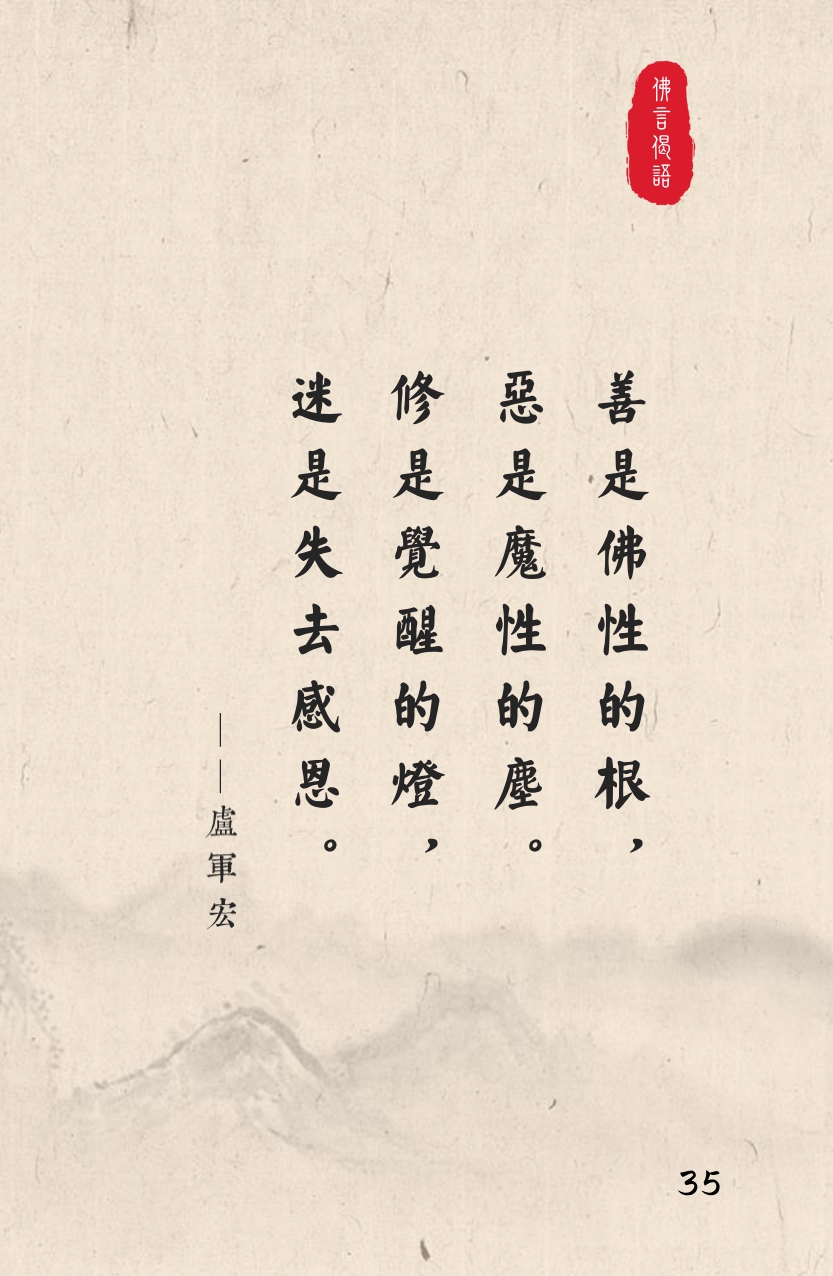 佛言偈語
善是佛性的根，
惡是魔性的塵。
修是覺醒的燈，
迷是失去感恩。
——盧軍宏
35